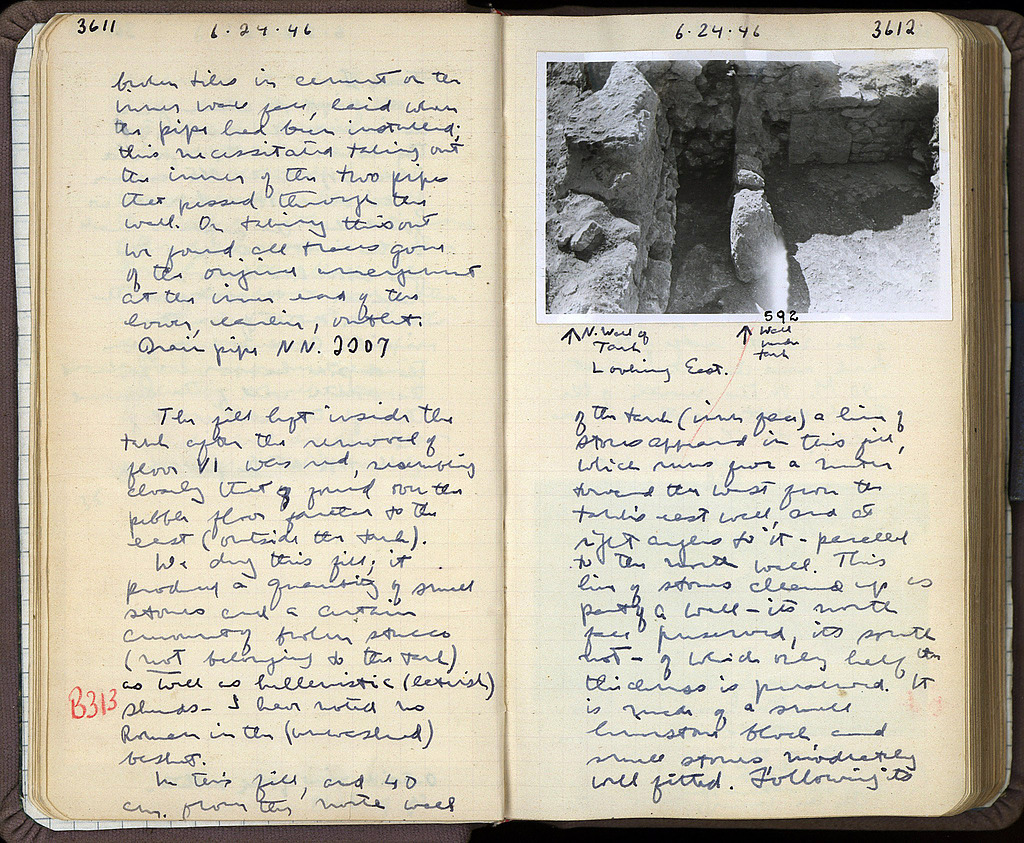 3611
6·24·46
broken tiles in cement on the
inner wall face, laid when
the pipe had been installed;
this necessitated taking out
the inner of the two pipes
that passed through the
wall. On taking this out
we found all traces gone
of the original arrangement
at the inner end of the
lower, earlier, outlet.
Drain pipe NN. 2207
The fill left inside the
tank after the removal of
floor VI was red, resembling
closely that found over the
pebble floor farther to the
east (outside the tank).
We dug this fill; it
produced a quantity of small
stones and a certain
amount of broken stucco
(not belonging to the tank)
as well as hellenistic (letish)
sherds - I have noted no
Roman in the (unwashed)
basket.
B313
In this fill, and 40
cm. from the north wall
6·24·46
3612
592
↑ N. Wall of
Tank
↑ Wall
under
tank
Looking East.
of the tank (inner face) a line of
stones appeared in this fill,
which runs for a meter
toward the west from the
tank's east wall, and at
right angles to it - parallel
to the north wall. This
line of stones cleaned up as
part of a wall - its north
face preserved, its south
not - of which only half the
thickness is preserved. It
is made of a small
limestone block and
small stones moderately
well fitted. Following its